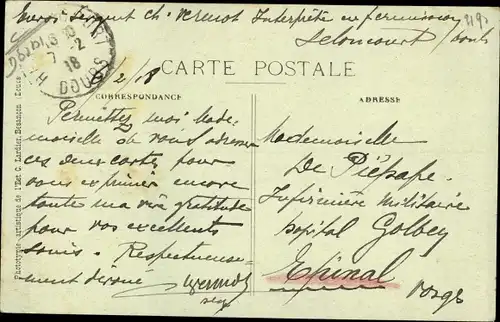 Envoi Sergent Ch. Vermot Interprète en permission
Seloncourt Doubs
DOUBS
7 - 2
18
6/2/18
CARTE POSTALE
CORRESPONDANCE
ADRESSE
Permettez moi Made-
moiselle de vous adresser
ces deux cartes pour
vous exprimer encore
toute ma vive gratitude
pour vos excellents
soins. Respectueuse-
ment dévoué
Vermot
Mademoiselle
De Piépape
Infirmière Militaire
Hopital Golbey
Epinal
Vosges
Phototypie artistique de l'Edit. C. Lardier, Besançon